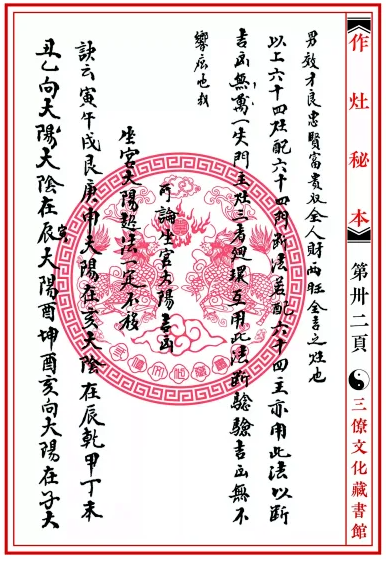 作灶秘本 第卅二頁 三僚文化藏書館
男敦才良忠賢富貴双全人財兩旺全吉之灶也
以上六十四灶配六十四門斷法若配六十四主亦用此法以斷
吉凶無萬一失門主灶三者廻環互用此法斷驗吉凶無不
響应也哉
可論坐宮太陽吉凶
坐宮太陽起法一定不移
訣云寅午戌艮庚申大陽在亥大陰在辰乾甲丁未
丑乙向大陽大陰在辰宮大陽酉坤酉亥向大陽在子大